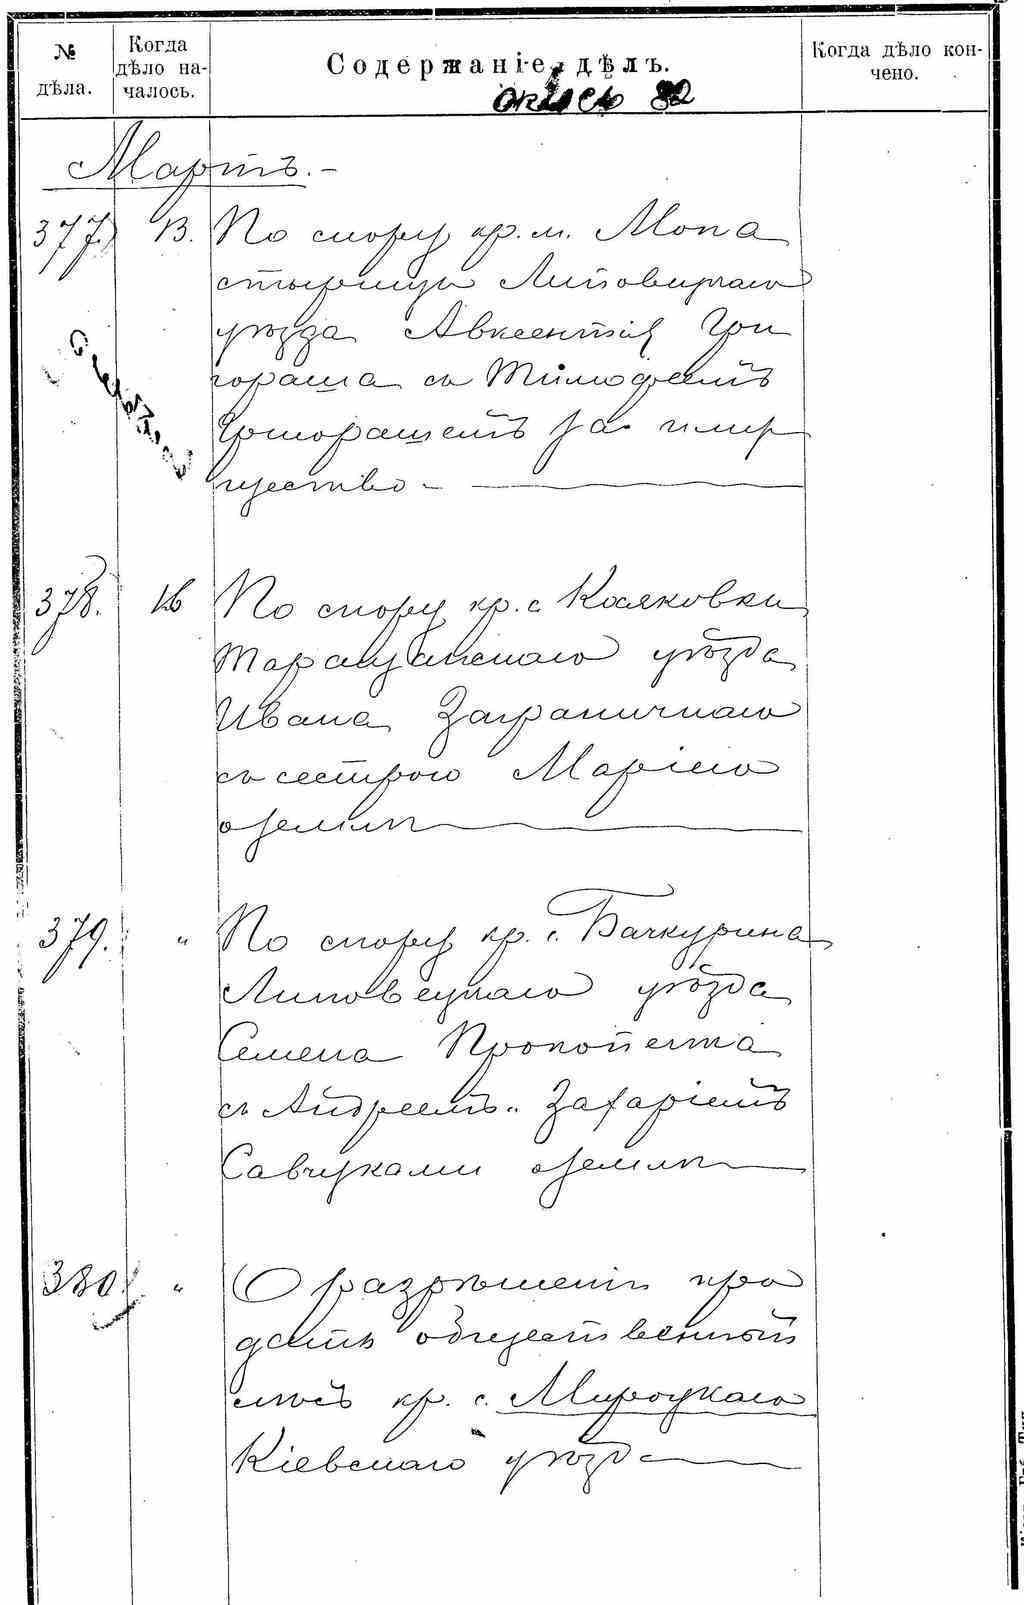 № дѣла.
Когда дѣло на-
чалось.
Содержаніе дѣлъ.
Когда дѣло кон-
чено.
опись 82
Мартъ.-
377. 13. По спору кр. м. Мона
стырища Липовецкаго
уѣзда Авксентія Гри
гораша съ Тимофеемъ
Григорашемъ за иму
щество -
378. 16 По спору кр. с. Косяковки
Таращанскаго уѣзда
Ивана Заграничнаго
съ сестрою Маріею
о землѣ
379. " По спору кр. с. Бачкурина
Липовецкаго уѣзда
Семена Прокопенка
съ Андреемъ и Захаріемъ
Савчуками о землѣ
380. " О разрѣшеніи про
дать общественный
лѣсъ кр. с. Мироцкаго
Кіевскаго уѣзда